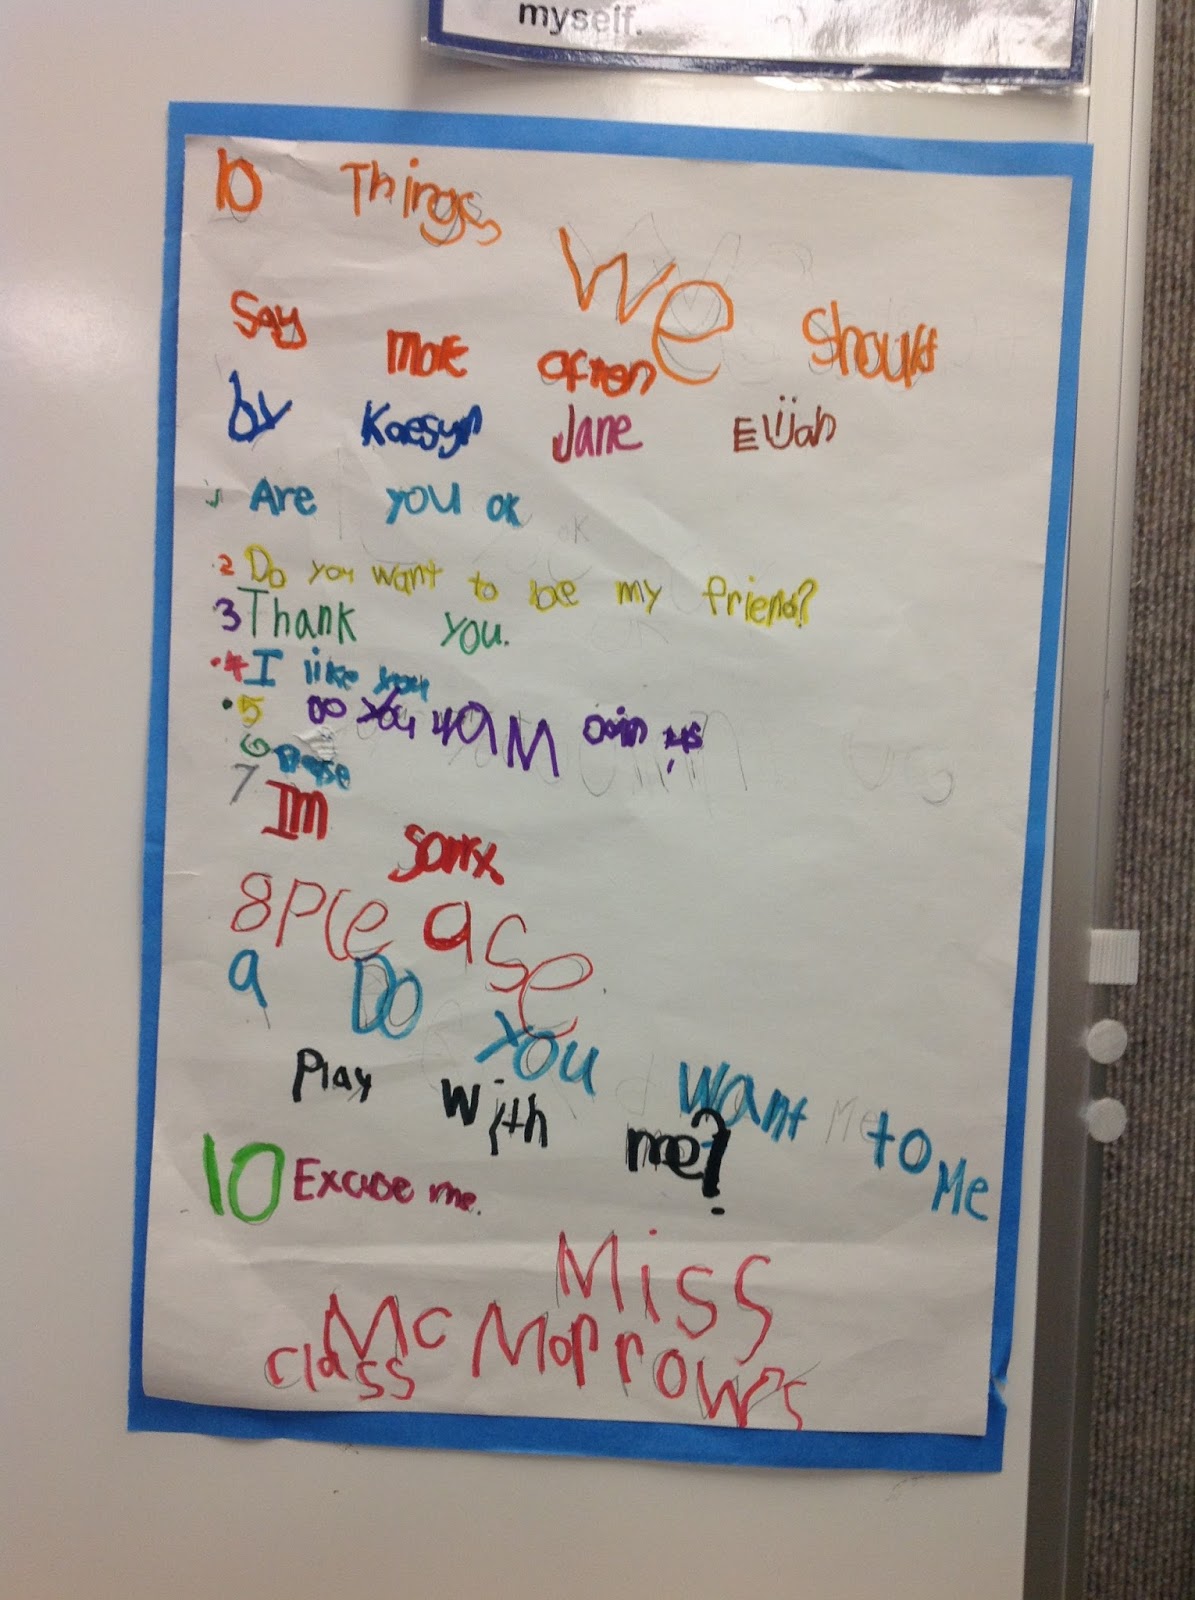 myself.
10 Things We Should
Say more often
by Kaesyn Jane Elijah
1 Are you ok
2 Do you want to be my friend?
3 Thank you.
4 I like you
5 Do you join us
6
7 Im sorry
8 Please
9 Do You want to Me
Play with me?
10 Excuse me.
Miss
Mc Morrow's
class